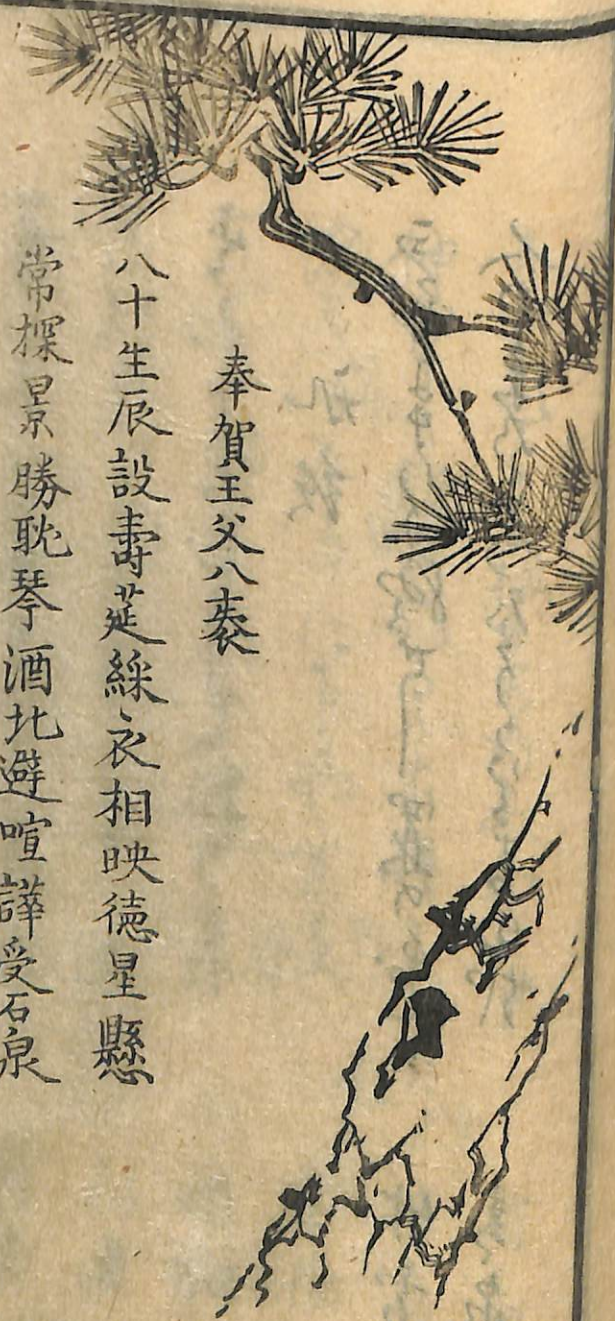 奉賀王父八袠
八十生辰設壽莚綵衣相映德星懸
常探景勝耽琴酒北避喧譁受石泉